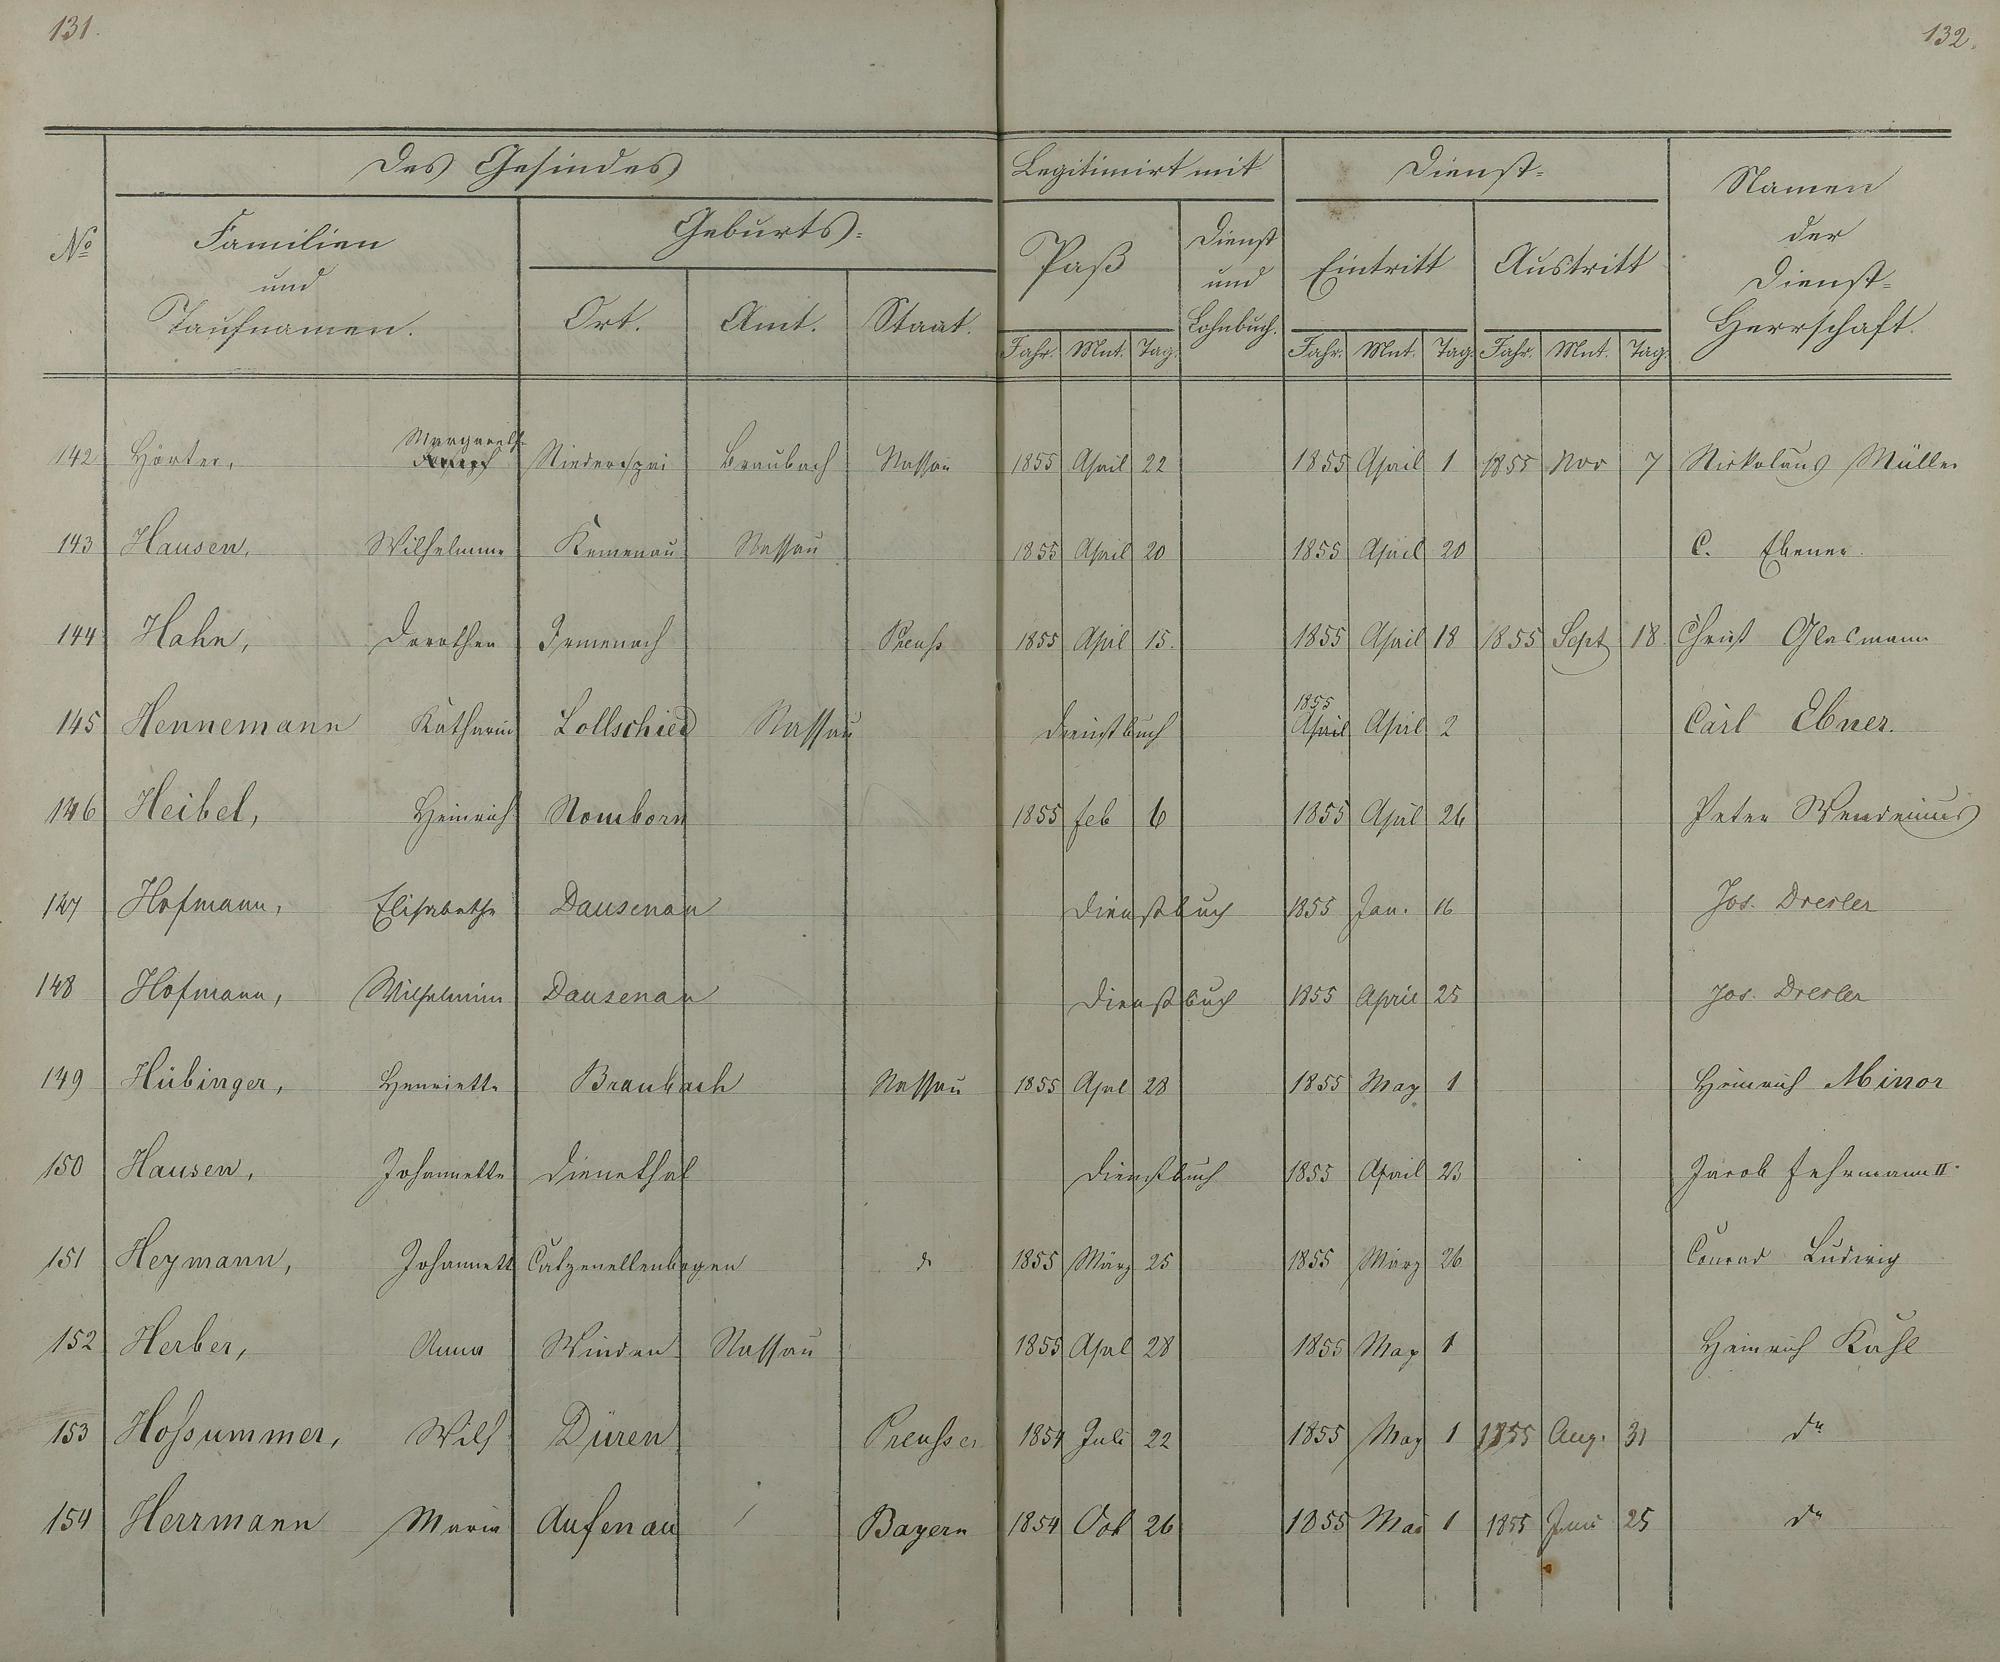 131.
132.
Des Gesindes
Legitimirt mit
Dienst=
Namen der Dienst=Herrschaft.
No
Familien und Taufnamen.
Geburts=
Paß
Dienst und Lohnbuch.
Eintritt
Austritt
Ort. Amt. Staat.
Jahr. Mnt. Tag. Jahr. Mnt. Tag. Jahr. Mnt. Tag.
142 Hörter, Margareth Niederspai Braubach Nassau 1855 April 22 1855 April 1 1855 Nov 7 Nickolaus Müller
143 Hausen, Wilhelmine Kemenau Nassau 1855 April 20 1855 April 20 C. Ebener
144 Hahn, Dorothea Irmenach Preuß 1855 April 15. 1855 April 18 1855 Sept 18 Christ Glasmann
145 Hennemann Katharin Lollschied Nassau Dienstbuch 1855 April April 2 Carl Ebner.
146 Heibel, Heinrich Nomborn 1855 feb 6 1855 April 26 Peter
147 Hofmann, Elisabethe Dausenau Dienstbuch 1855 Jan. 16 Jos. Dresler
148 Hofmann, Wilhelmine Dausenau Dienstbuch 1855 April 25 Jos. Dresler
149 Hübinger, Henriette Braubach Nassau 1855 Aprl 28 1855 May 1 Heinrich Minor
150 Hausen, Johannette Dienethal Dienstbuch 1855 April 23 Jacob Fehrmann II.
151 Heymann, Johannett Catzenellenbogen do 1855 März 25 1855 März 26 Conrad Ludwig
152 Herber, Anna Winden Nassau 1855 Aprl 28 1855 May 1 Heinrich Kahl
153 Hoßummer, Wilh Düren Preußen 1854 Juli 22 1855 May 1 1855 Aug. 31 do
154 Herrmann Maria Aufenau / Bayern 1854 Oct 26 1855 Mai 1 1855 Juni 25 do